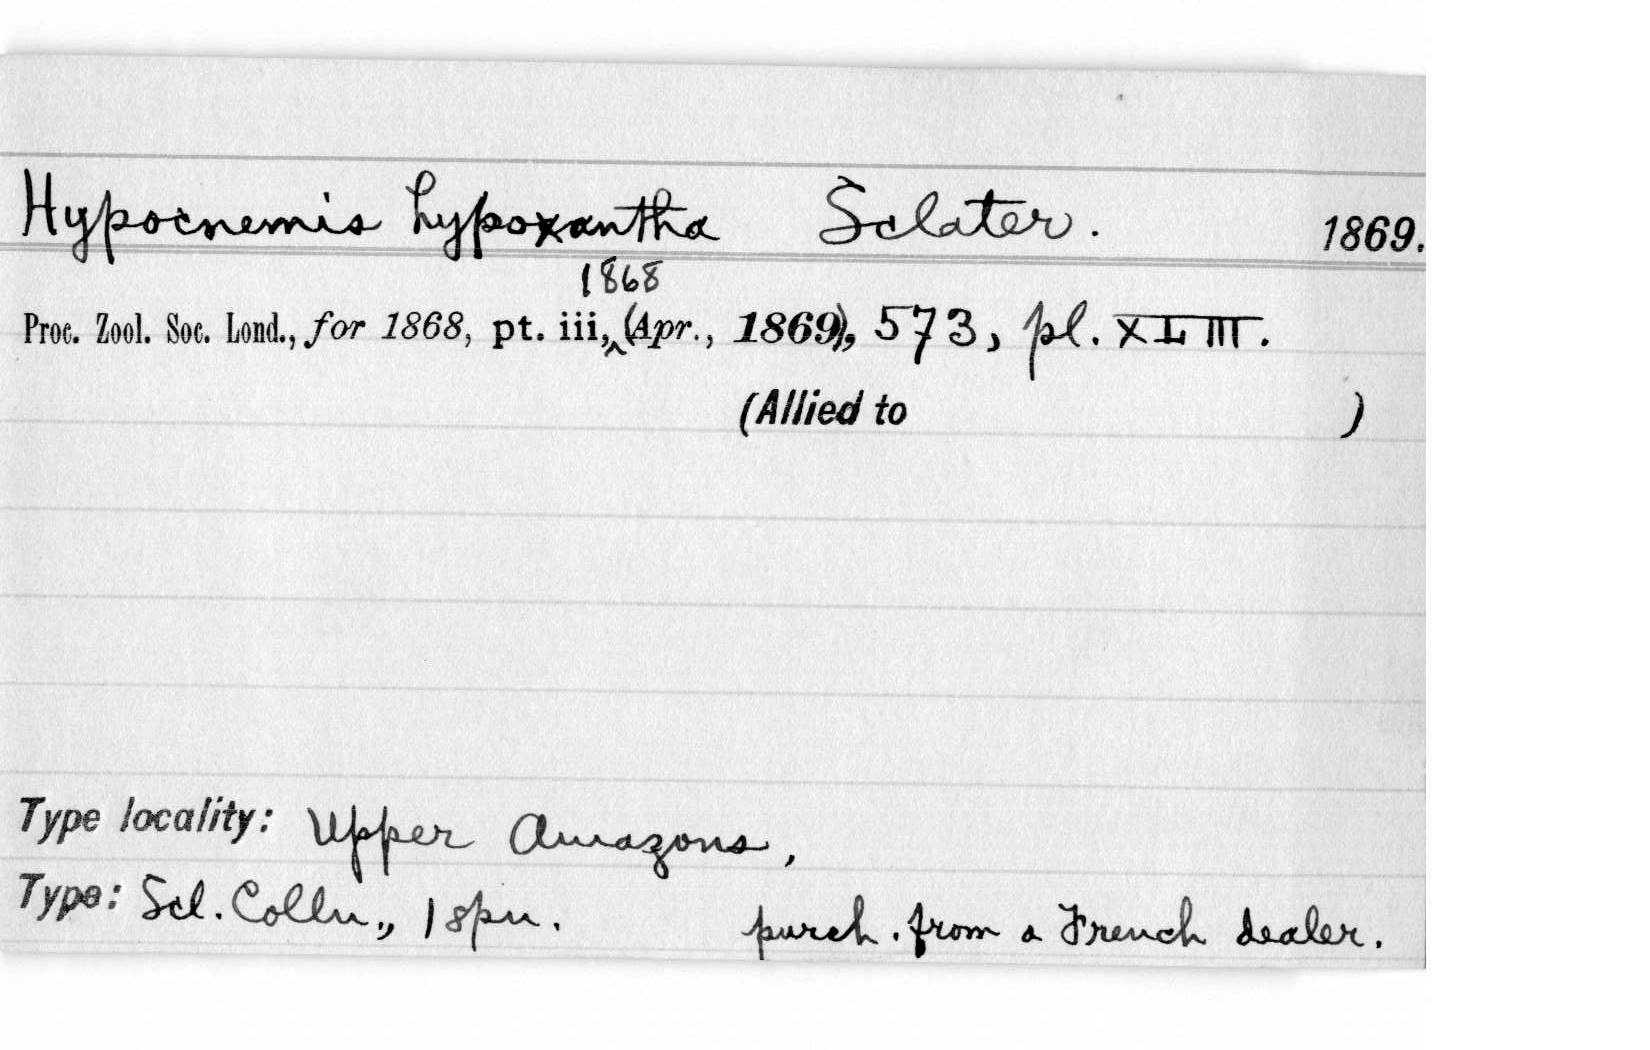 Hypocnemis hypoxantha Sclater. 1869.
1868
Proc. Zool. Soc. Lond., for 1868, pt. iii, ^ (Apr., 1869), 573, pl. XLIII.
(Allied to )
Type locality: Upper Amazons,
Type: Scl. Colln., 1 spn. purch. from a French dealer.